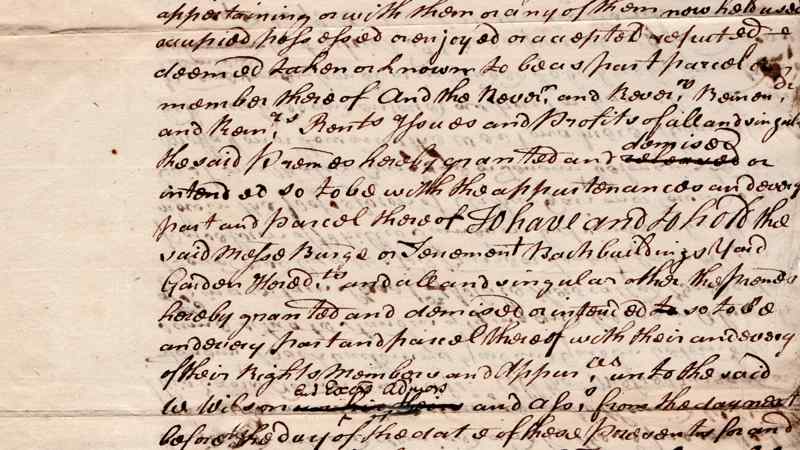 appertaining or with them or any of them now held used
occupied possessed or enjoyed or accepted reputed
deemed taken or known to be as part parcel or
member thereof And the Rever.n and Rever.ns Remen.dr
and Rem.rs Rents Issues and Profits of all and singular
the said Premes hereby granted and demised released or
intended so to be with the appurtenances and every
part and parcel thereof To have and to hold the
said Messe Burge or Tenement Backbuildings Yard
Garden Hered.ts and all and singular other the premes
hereby granted and demised or intended to so to be
and every part and parcel thereof with their and every
of their Rights Members and Appur.ces unto the said
W Wilson Exors Admors and Ass.s from the day next
before the day of the date of these presents for and